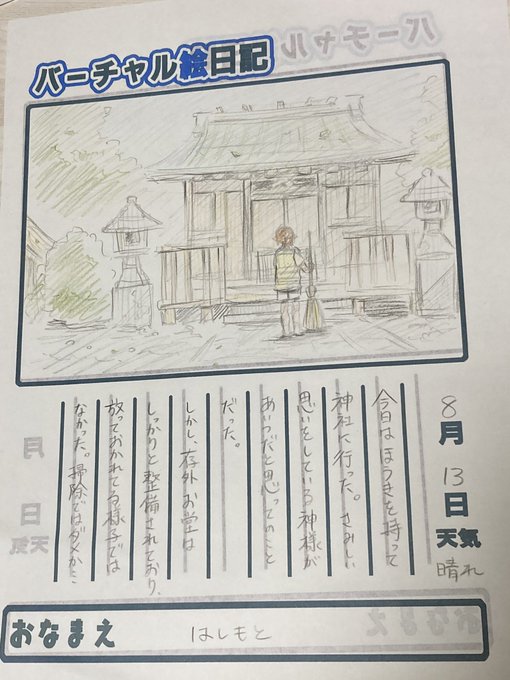 バーチャル絵日記
8月13日
天気 晴れ
今日はほうきを持って
神社に行った。さみしい
思いをしている神様が
あいつだと思ってのこと
だった。
しかし、存外お堂は
しっかりと整備されており、
放っておかれてる様子では
なかった。掃除ではダメか…
おなまえ はしもと